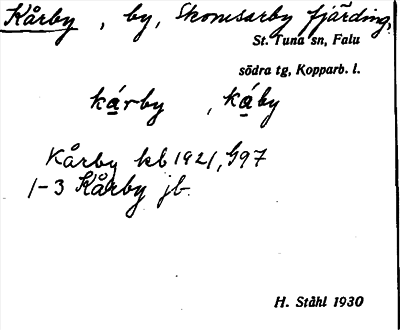 Kårby, by, Skomsarby fjärding,
St. Tuna sn, Falu
södra tg, Kopparb. l.
kárby, káby
Kårby kb 1921, 997
1-3 Kårby jb.
H. Ståhl 1930